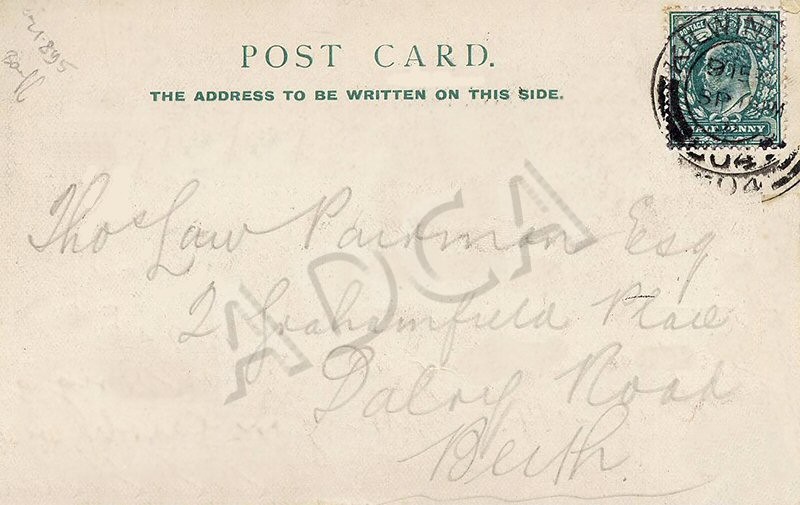 POST CARD.
THE ADDRESS TO BE WRITTEN ON THIS SIDE.
HALF PENNY
04
04
ADCA
Thos Law Pairman Esq
2 Grahamfield Place
Dalry Road
Beith